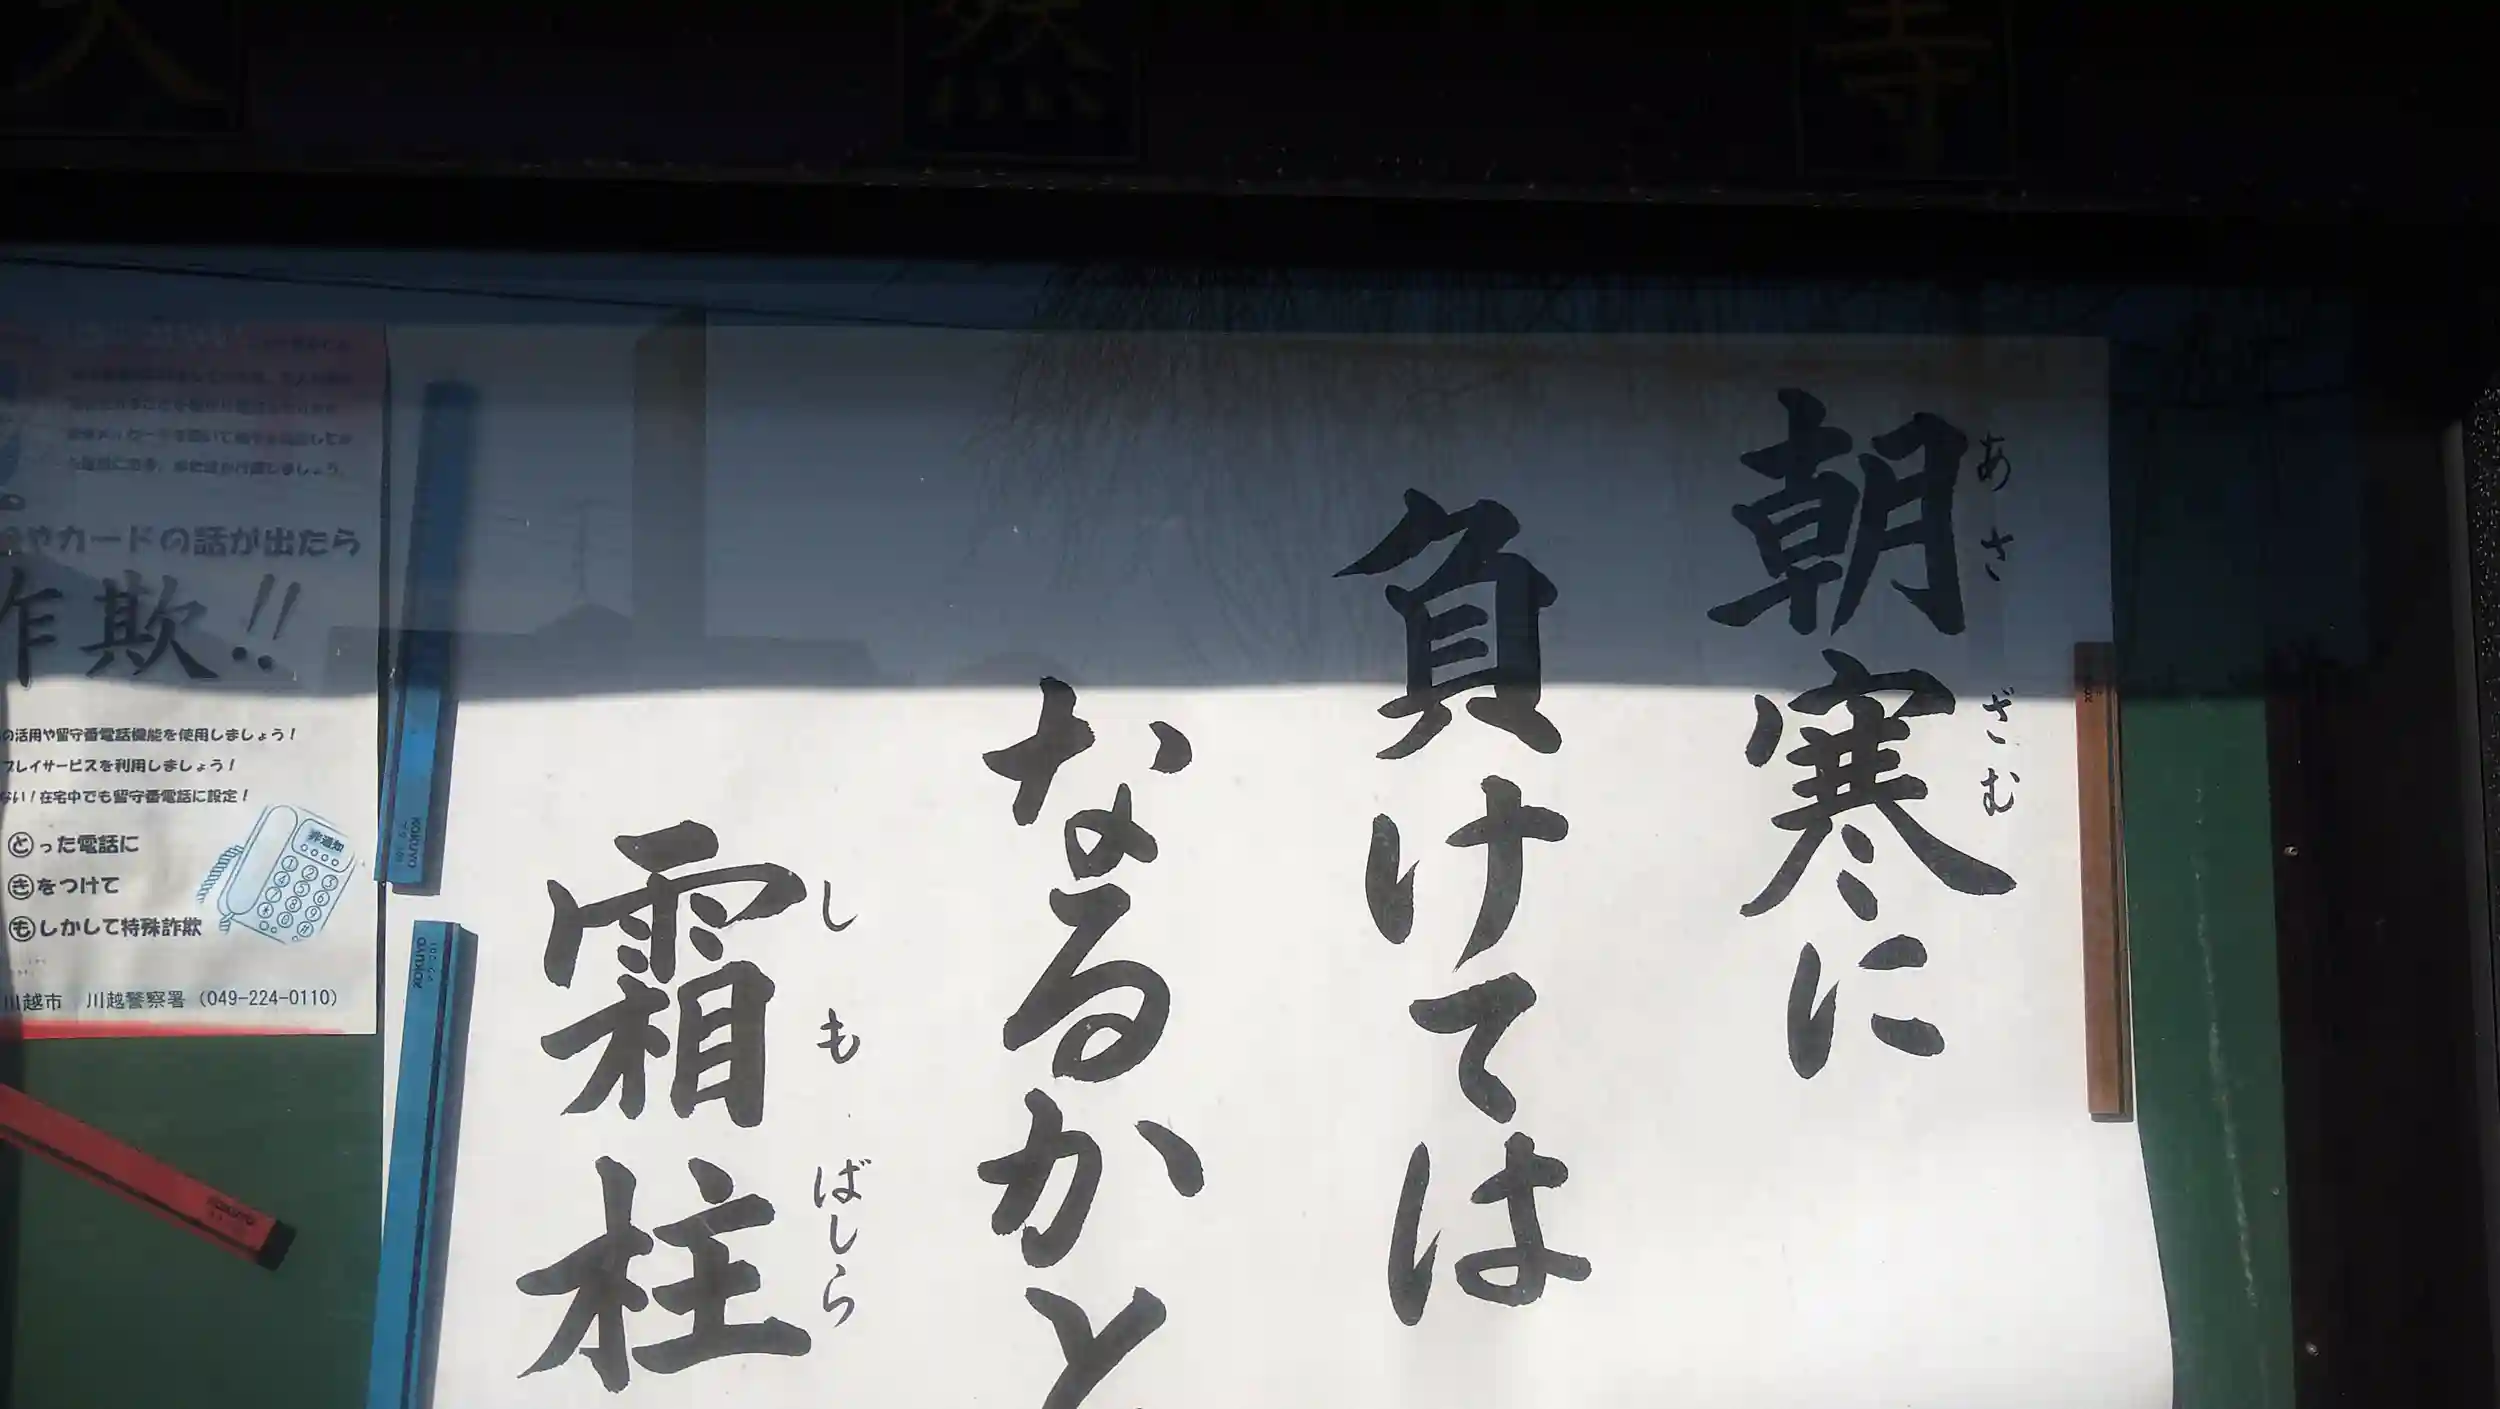 大 然 寺
朝寒に
あさ ざむ
負けては
なるかと
霜柱
しも ばしら
やカードの話が出たら
詐欺!!
の活用や留守番電話機能を使用しましょう!
プレイサービスを利用しましょう!
ない!在宅中でも留守番電話に設定!
とった電話に
きをつけて
もしかして特殊詐欺
非通知
1 2 3
4 5 6
7 8 9
* 0 #
川越市 川越警察署(049-224-0110)
KOKUYO
KOKUYO
KOKUYO